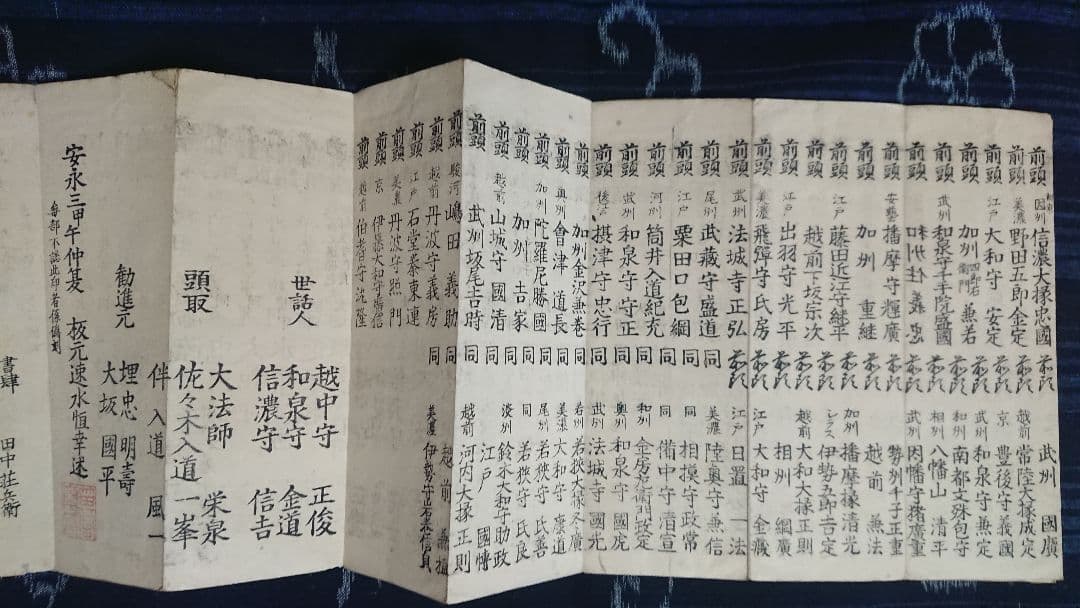 前頭 因州 信濃大掾忠國
前頭 美濃 野田五郎金定
前頭 江戸 大和守 安定
前頭 加州 四郎右衛門 兼若
前頭 武州 和泉守千手院盛國
前頭 和州住 義忠
前頭 安藝 播摩守輝廣
前頭 加州 重継
前頭 江戸 藤田近江守継平
前頭 越前下坂宗次
前頭 江戸 出羽守光平
前頭 美濃 飛騨守氏房
前頭 武州 法城寺正弘
前頭 尾州 武藏守盛道
前頭 江戸 粟田口包綱
前頭 河州 筒井入道紀充
前頭 武州 和泉守守正
前頭 摂津守忠行
前頭 加州金沢兼巻
前頭 奥州 會津 道長
前頭 加州 陀羅尼勝國
前頭 加州 吉家
前頭 越前 山城守國清
前頭 武州坂尾吉時
前頭 駿河 嶋田 義助
前頭 越前 丹波守義房
前頭 江戸 石堂
前頭 美濃 丹波守照門
前頭 京 伊藤大和守
前頭 越前 伯耆守汎隆
前頭 武州 國廣
前頭 越前 常陸大掾成定
前頭 京 豊後守義國
前頭 武州 和泉守兼定
前頭 和州 南都文殊包守
前頭 相州 八幡山 清平
前頭 武州 因幡守
前頭 勢州千子正重
前頭 越前 兼法
前頭 加州 播摩掾清光
前頭 伊勢五郎吉定
前頭 越前 大和大掾正則
前頭 相州 綱廣
前頭 江戸 大和守
前頭 江戸 日置 一法
同 美濃 陸奥守兼信
同 同 相摸守政常
同 同 備中守清宣
同 和州 金房
同 奥州 和泉守國虎
同 武州 法城寺國光
同 若州 若狹大掾冬廣
同 美濃 大和守 慶道
同 尾州 若狹守氏善
同 同 若狹守氏良
同 鈴木大和守助政
同 江戸 國博
同 越前 河内大掾正則
同 越前 兼植
美濃 伊勢守
世話人
越中守 正俊
和泉守 金道
信濃守 信吉
頭取
大法師 栄泉
佐々木入道 一峯
伴入道 風一
勧進元
埋忠 明壽
大坂 國平
安永三甲午仲夏 板元速水恒幸述
書肆 田中荘兵衛